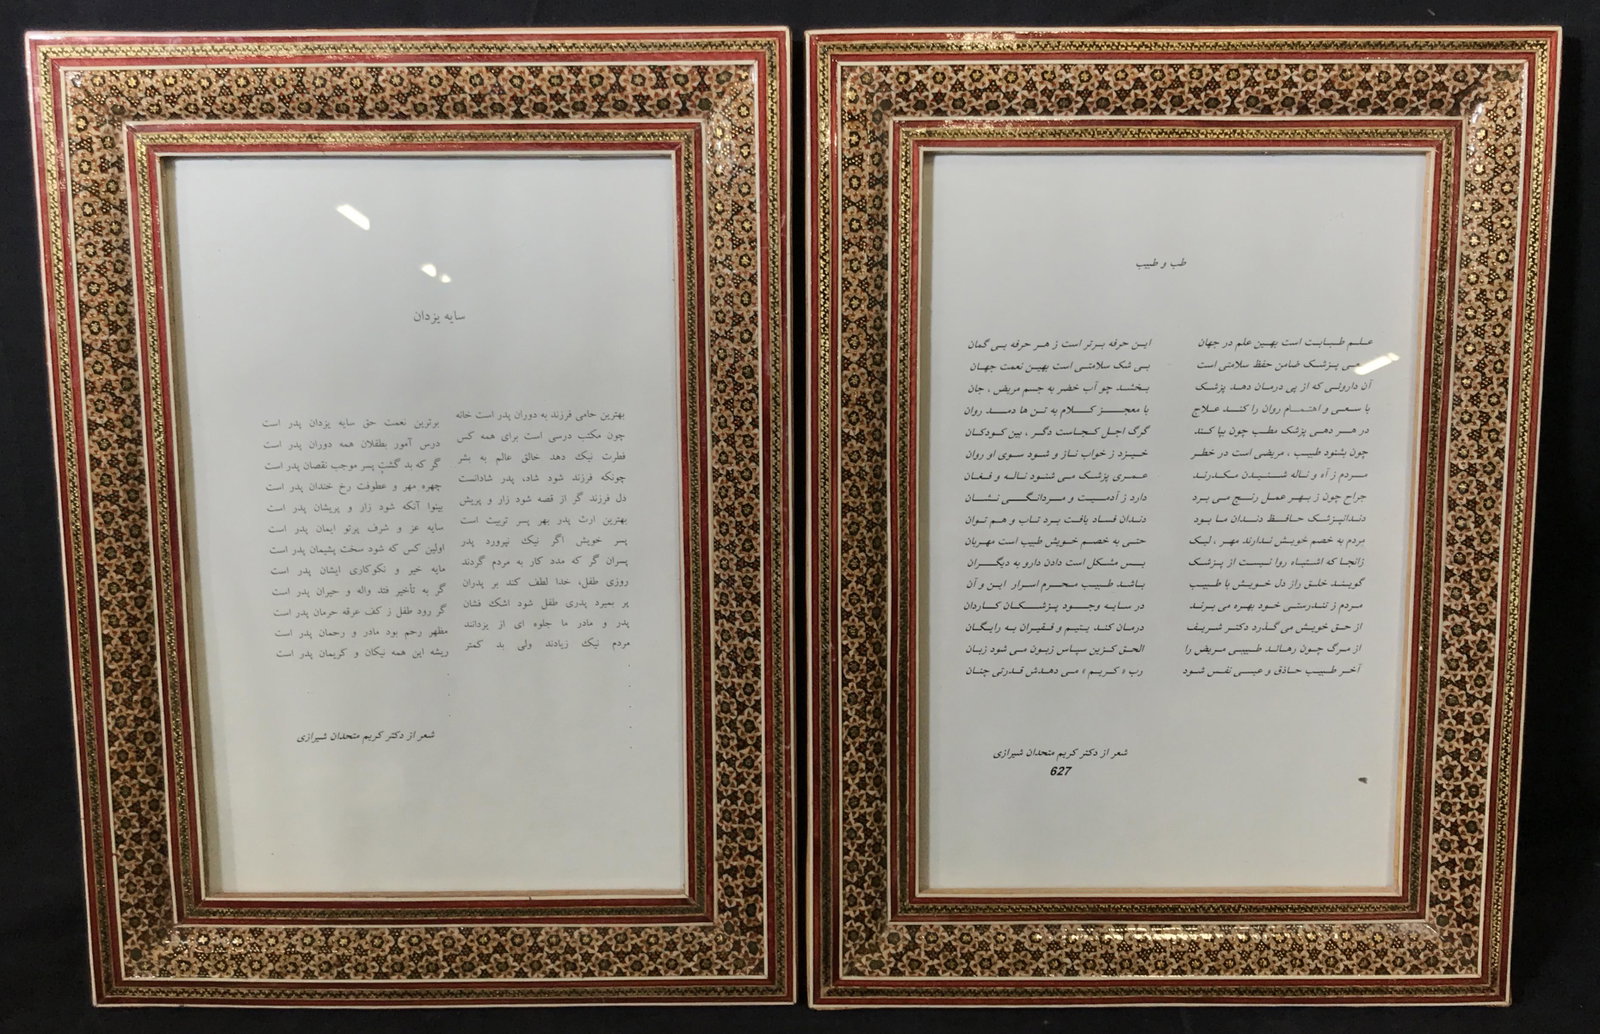 طب و طبیب
علم طبابت است بهین علم در جهان این حرفه برتر است ز هر حرفه بی گمان
پزشک ضامن حفظ سلامتی است بی شک سلامتی است بهین نعمت جهان
آن داروئی که از پی درمان دهد پزشک بخشد چو آب خضر به جسم مریض ، جان
با سعی و اهتمام روان را کند علاج با معجز کلام به تن ها دمد روان
در هر دهی پزشک مطب چون بپا کند گرگ اجل کجاست دگر ، بین کودکان
چون بشنود طبیب ، مریضی است در خطر خیزد ز خواب ناز و شود سوی او روان
مردم ز آه و ناله شنیدن مکدرند عمری پزشک می شنود ناله و فغان
جراح چون ز بهر عمل رنج می برد دارد ز آدمیت و مردانگی نشان
دندانپزشک حافظ دندان ما بود دندان فساد یافت برد تاب و هم توان
مردم به خصم خویش ندارند مهر ، لیک حتی به خصم خویش طبیب است مهربان
زانجا که اشتباه روا نیست از پزشک بس مشکل است دادن دارو به دیگران
گویند خلق راز دل خویش با طبیب باشد طبیب محرم اسرار این و آن
مردم ز تندرستی خود بهره می برند در سایه وجود پزشکان کاردان
از حق خویش می گذرد دکتر شریف درمان کند یتیم و فقیران به رایگان
از مرگ چون رهاند طبیبی مریض را الحق کزین سپاس زبون می شود زبان
آخر طبیب حاذق و عیسی نفس شود رب « کریم » می دهدش قدرتی چنان
شعر از دکتر کریم متحدان شیرازی
627
سایه یزدان
بهترین حامی فرزند به دوران پدر است خانه برترین نعمت حق سایه یزدان پدر است
چون مکتب درسی است برای همه کس درس آمور بطفلان همه دوران پدر است
فطرت نیک دهد خالق عالم به بشر گر که بد گشتِ پسر موجب نقصان پدر است
چونکه فرزند شود شاد، پدر شادانست چهره مهر و عطوفت رخ خندان پدر است
دل فرزند گر از قصه شود زار و پریش بینوا آنکه شود زار و پریشان پدر است
بهترین ارث پدر بهر پسر تربیت است سایه عز و شرف پرتو ایمان پدر است
پسر خویش اگر نیک نپرورد پدر اولین کس که شود سخت پشیمان پدر است
پسران گر که مدد کار به مردم گردند مایه خیر و نکوکاری ایشان پدر است
روزی طفل، خدا لطف کند بر پدران گر به تأخیر فتد واله و حیران پدر است
پر بمیرد پدری طفل شود اشک فشان گر رود طفل ز کف عرقه حرمان پدر است
پدر و مادر ما جلوه ای از یزدانند مظهر رحم بود مادر و رحمان پدر است
مردم نیک زیادند ولی بد کمتر ریشه این همه نیکان و کریمان پدر است
شعر از دکتر کریم متحدان شیرازی